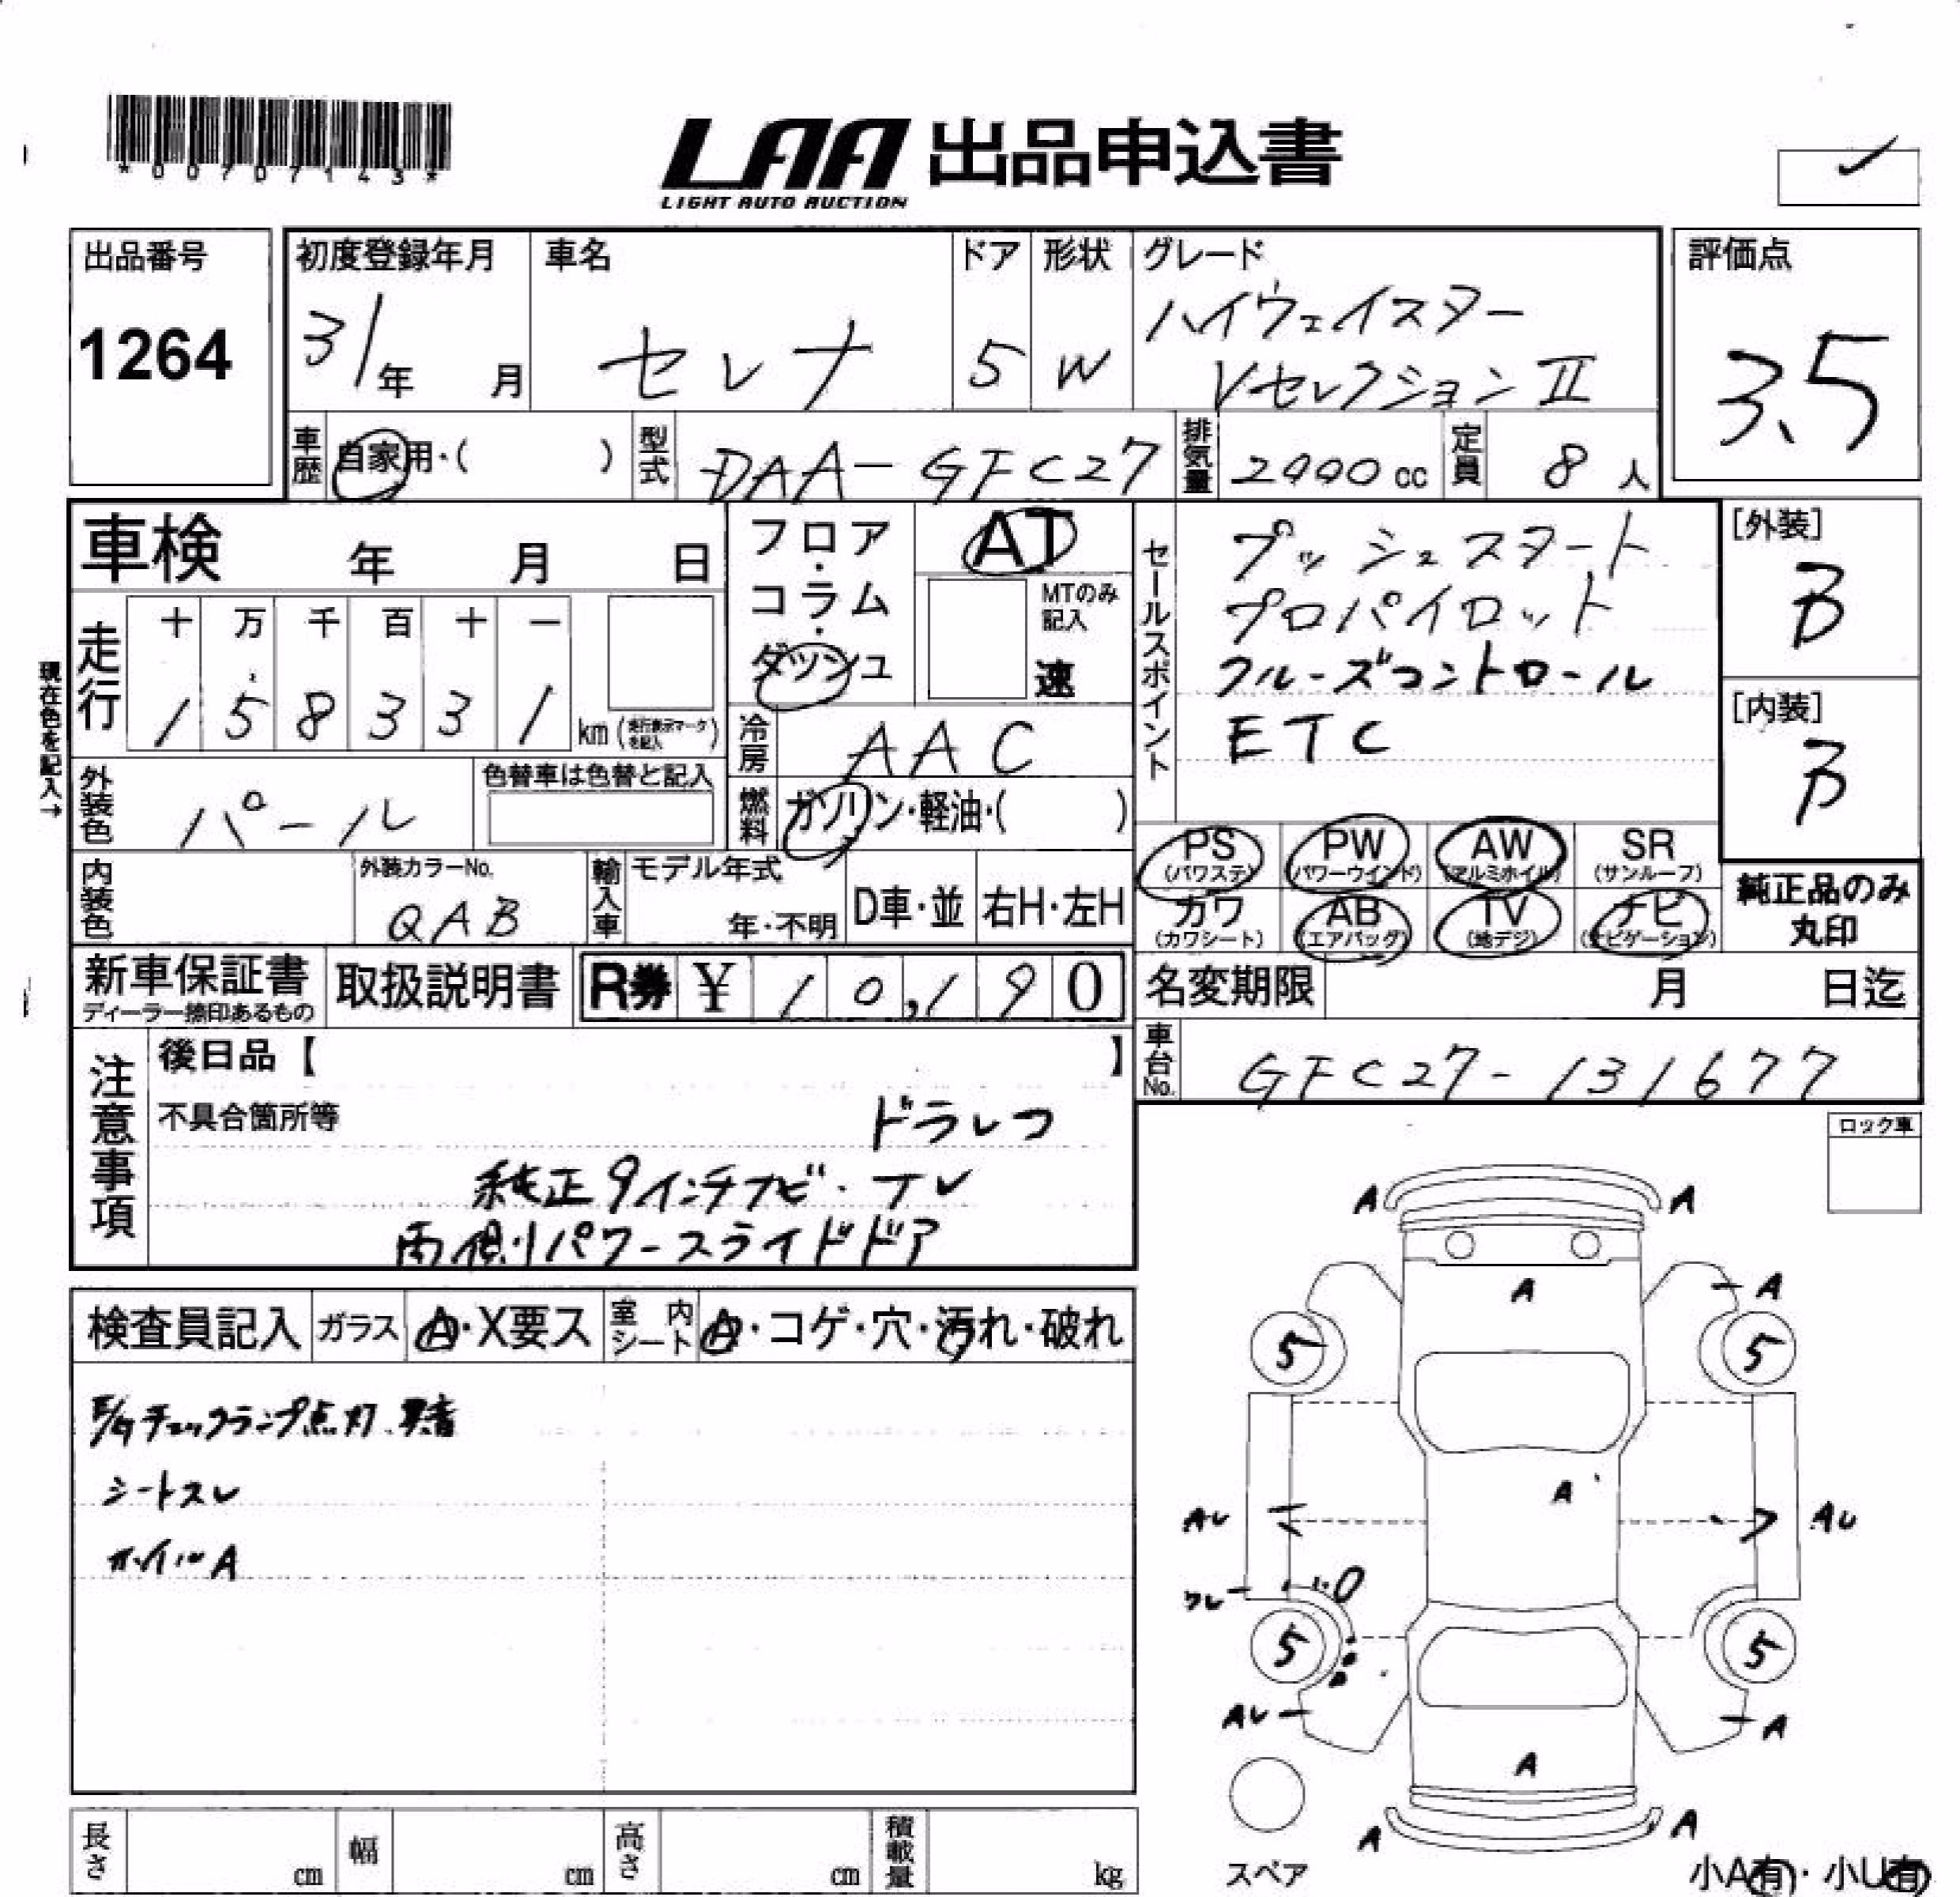 *00707143*
LAA 出品申込書
LIGHT AUTO AUCTION
出品番号
1264
初度登録年月
31年 月
車名
セレナ
ドア
5
形状
W
グレード
ハイウェイスター
VセレクションⅡ
評価点
3.5
車歴
自家用・( )
型式
DAA-GFC27
排気量
2000cc
定員
8人
車検 年 月 日
フロア・コラム・ダッシュ
AT
MTのみ記入
速
セールスポイント
プッシュスタート
プロパイロット
クルーズコントロール
ETC
[外装]
B
[内装]
B
現在色を記入→
走行
十 万 千 百 十 一
1 5 8 3 3 1
km(走行表示マークを記入)
冷房
AAC
外装色
パール
色替車は色替と記入
燃料
ガソリン・軽油・( )
内装色
外装カラーNo.
QAB
輸入車
モデル年式
年・不明
D車・並
右H・左H
PS
(パワステ)
PW
(パワーウインド)
AW
(アルミホイル)
SR
(サンルーフ)
カワ
(カワシート)
AB
(エアバッグ)
TV
(地デジ)
ナビ
(ナビゲーション)
純正品のみ
丸印
新車保証書
ディーラー捺印あるもの
取扱説明書
R券 ¥ 10,190
名変期限 月 日迄
車台No.
GFC27-131677
注意事項
後日品【 】
不具合箇所等
ドラレコ
純正9インチナビ・TV
両側パワースライドドア
ロック車
検査員記入
ガラス
A・X要ス
室内シート
A・コゲ・穴・汚れ・破れ
E/Gチェックランプ点灯、異音
シートスレ
ホイルA
A A
A A
5 5
A
AU AU
0
5 5
AU A
A
A A
スペア
小A有・小U有
長さ cm
幅 cm
高さ cm
積載量 kg